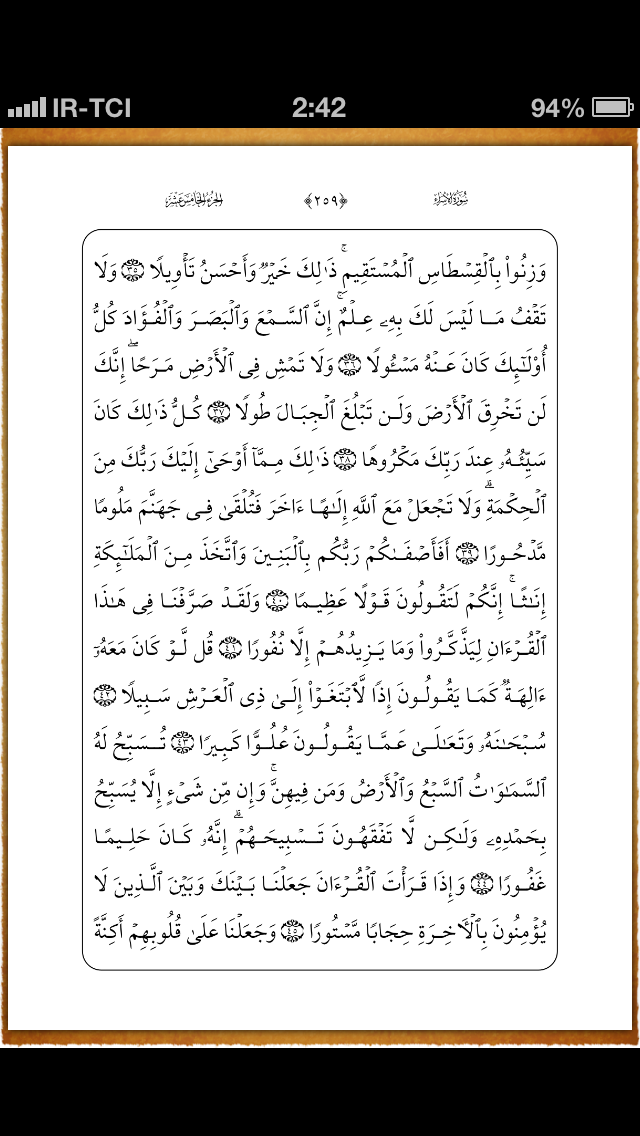 IR-TCI 2:42 94%
سُورَةُ الإِسْرَاءِ ﴿٢٥٩﴾ الجُزْءُ الخَامِسَ عَشَرَ
وَزِنُوا۟ بِٱلْقِسْطَاسِ ٱلْمُسْتَقِيمِ ۚ ذَٰلِكَ خَيْرٌ وَأَحْسَنُ تَأْوِيلًا ٣٥ وَلَا
تَقْفُ مَا لَيْسَ لَكَ بِهِۦ عِلْمٌ ۚ إِنَّ ٱلسَّمْعَ وَٱلْبَصَرَ وَٱلْفُؤَادَ كُلُّ
أُو۟لَـٰٓئِكَ كَانَ عَنْهُ مَسْـُٔولًا ٣٦ وَلَا تَمْشِ فِى ٱلْأَرْضِ مَرَحًا ۖ إِنَّكَ
لَن تَخْرِقَ ٱلْأَرْضَ وَلَن تَبْلُغَ ٱلْجِبَالَ طُولًا ٣٧ كُلُّ ذَٰلِكَ كَانَ
سَيِّئُهُۥ عِندَ رَبِّكَ مَكْرُوهًا ٣٨ ذَٰلِكَ مِمَّآ أَوْحَىٰٓ إِلَيْكَ رَبُّكَ مِنَ
ٱلْحِكْمَةِ ۗ وَلَا تَجْعَلْ مَعَ ٱللَّهِ إِلَـٰهًا ءَاخَرَ فَتُلْقَىٰ فِى جَهَنَّمَ مَلُومًا
مَّدْحُورًا ٣٩ أَفَأَصْفَىٰكُمْ رَبُّكُم بِٱلْبَنِينَ وَٱتَّخَذَ مِنَ ٱلْمَلَـٰٓئِكَةِ
إِنَـٰثًا ۚ إِنَّكُمْ لَتَقُولُونَ قَوْلًا عَظِيمًا ٤٠ وَلَقَدْ صَرَّفْنَا فِى هَـٰذَا
ٱلْقُرْءَانِ لِيَذَّكَّرُوا۟ وَمَا يَزِيدُهُمْ إِلَّا نُفُورًا ٤١ قُل لَّوْ كَانَ مَعَهُۥٓ
ءَالِهَةٌ كَمَا يَقُولُونَ إِذًا لَّٱبْتَغَوْا۟ إِلَىٰ ذِى ٱلْعَرْشِ سَبِيلًا ٤٢
سُبْحَـٰنَهُۥ وَتَعَـٰلَىٰ عَمَّا يَقُولُونَ عُلُوًّا كَبِيرًا ٤٣ تُسَبِّحُ لَهُ
ٱلسَّمَـٰوَٰتُ ٱلسَّبْعُ وَٱلْأَرْضُ وَمَن فِيهِنَّ ۚ وَإِن مِّن شَىْءٍ إِلَّا يُسَبِّحُ
بِحَمْدِهِۦ وَلَـٰكِن لَّا تَفْقَهُونَ تَسْبِيحَهُمْ ۗ إِنَّهُۥ كَانَ حَلِيمًا
غَفُورًا ٤٤ وَإِذَا قَرَأْتَ ٱلْقُرْءَانَ جَعَلْنَا بَيْنَكَ وَبَيْنَ ٱلَّذِينَ لَا
يُؤْمِنُونَ بِٱلْـَٔاخِرَةِ حِجَابًا مَّسْتُورًا ٤٥ وَجَعَلْنَا عَلَىٰ قُلُوبِهِمْ أَكِنَّةً